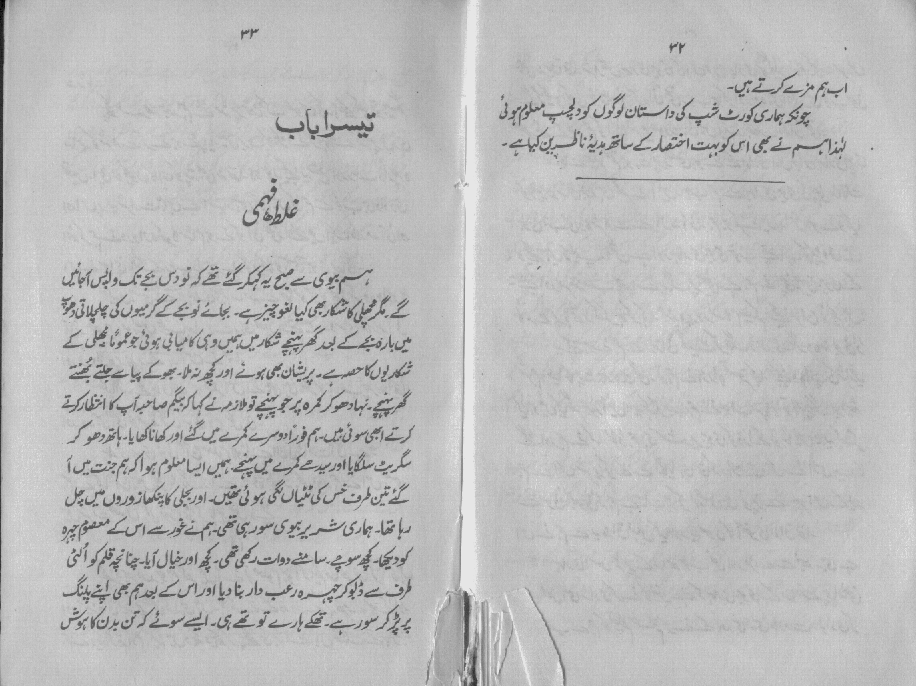 ۳۲
اب ہم مزے کرتے ہیں۔
چونکہ ہماری کورٹ شپ کی داستان لوگوں کو دلچسپ معلوم ہوئی
لہٰذا ہم نے بھی اس کو بہت اختصار کے ساتھ ہدیۂ ناظرین کیا ہے۔
۳۳
تیسرا باب
غلط فہمی
ہم بیوی سے صبح یہ کہہ کر گئے تھے کہ نو دس بجے تک واپس آجائیں
گے۔ مگر مچھلی کا شکار بھی کیا لغو چیز ہے۔ بجائے نو بجے کے گرمیوں کی چلچلاتی دھوپ
میں بارہ بجے کے بعد گھر پہنچے شکار میں ہمیں وہی کامیابی ہوئی جو عموماً مچھلی کے
شکاریوں کا حصہ ہے۔ پریشان بھی ہوئے اور کچھ نہ ملا۔ بھوکے پیاسے جلتے بھنتے
گھر پہنچے۔ نہا دھو کر کمرہ پر جو پہنچے تو ملازمہ نے کہا کہ بیگم صاحبہ آپ کا انتظار کرتے
کرتے ابھی سوئی ہیں۔ ہم فوراً دوسرے کمرے میں گئے اور کھانا کھایا۔ ہاتھ دھو کر
سگریٹ سلگایا اور سیدھے کمرے میں پہنچے۔ ہمیں ایسا معلوم ہوا کہ ہم جنت میں آ
گئے تین طرف خس کی ٹٹیاں لگی ہوئی تھیں۔ اور بجلی کا پنکھا زوروں میں چل
رہا تھا۔ ہماری شریر بیوی سو رہی تھی۔ ہم نے غور سے اس کے معصوم چہرہ
کو دیکھا۔ کچھ سوچے۔ سامنے دوات رکھی تھی۔ کچھ اور خیال آیا۔ چنانچہ قلم کو الٹی
طرف سے ڈبو کر چہرہ رعب دار بنا دیا اور اس کے بعد ہم بھی اپنے پلنگ
پر پڑ کر سو رہے۔ تھکے ہارے تو تھے ہی۔ ایسے سوئے کہ تن بدن کا ہوش